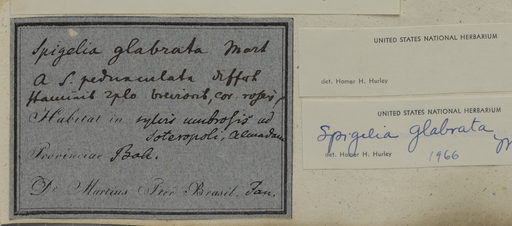 Spigelia glabrata Mart
A S. pedunculata differt
staminib. 2plo breviorib, cor. rosea,
Habitat in sylvis umbrosis ad
Soteropoli, Almadam
Provinciae Bah.
Dr Martius Iter Brasil. Jan.
UNITED STATES NATIONAL HERBARIUM
det. Homer H. Hurley
UNITED STATES NATIONAL HERBARIUM
Spigelia glabrata
det. Homer H. Hurley 1966